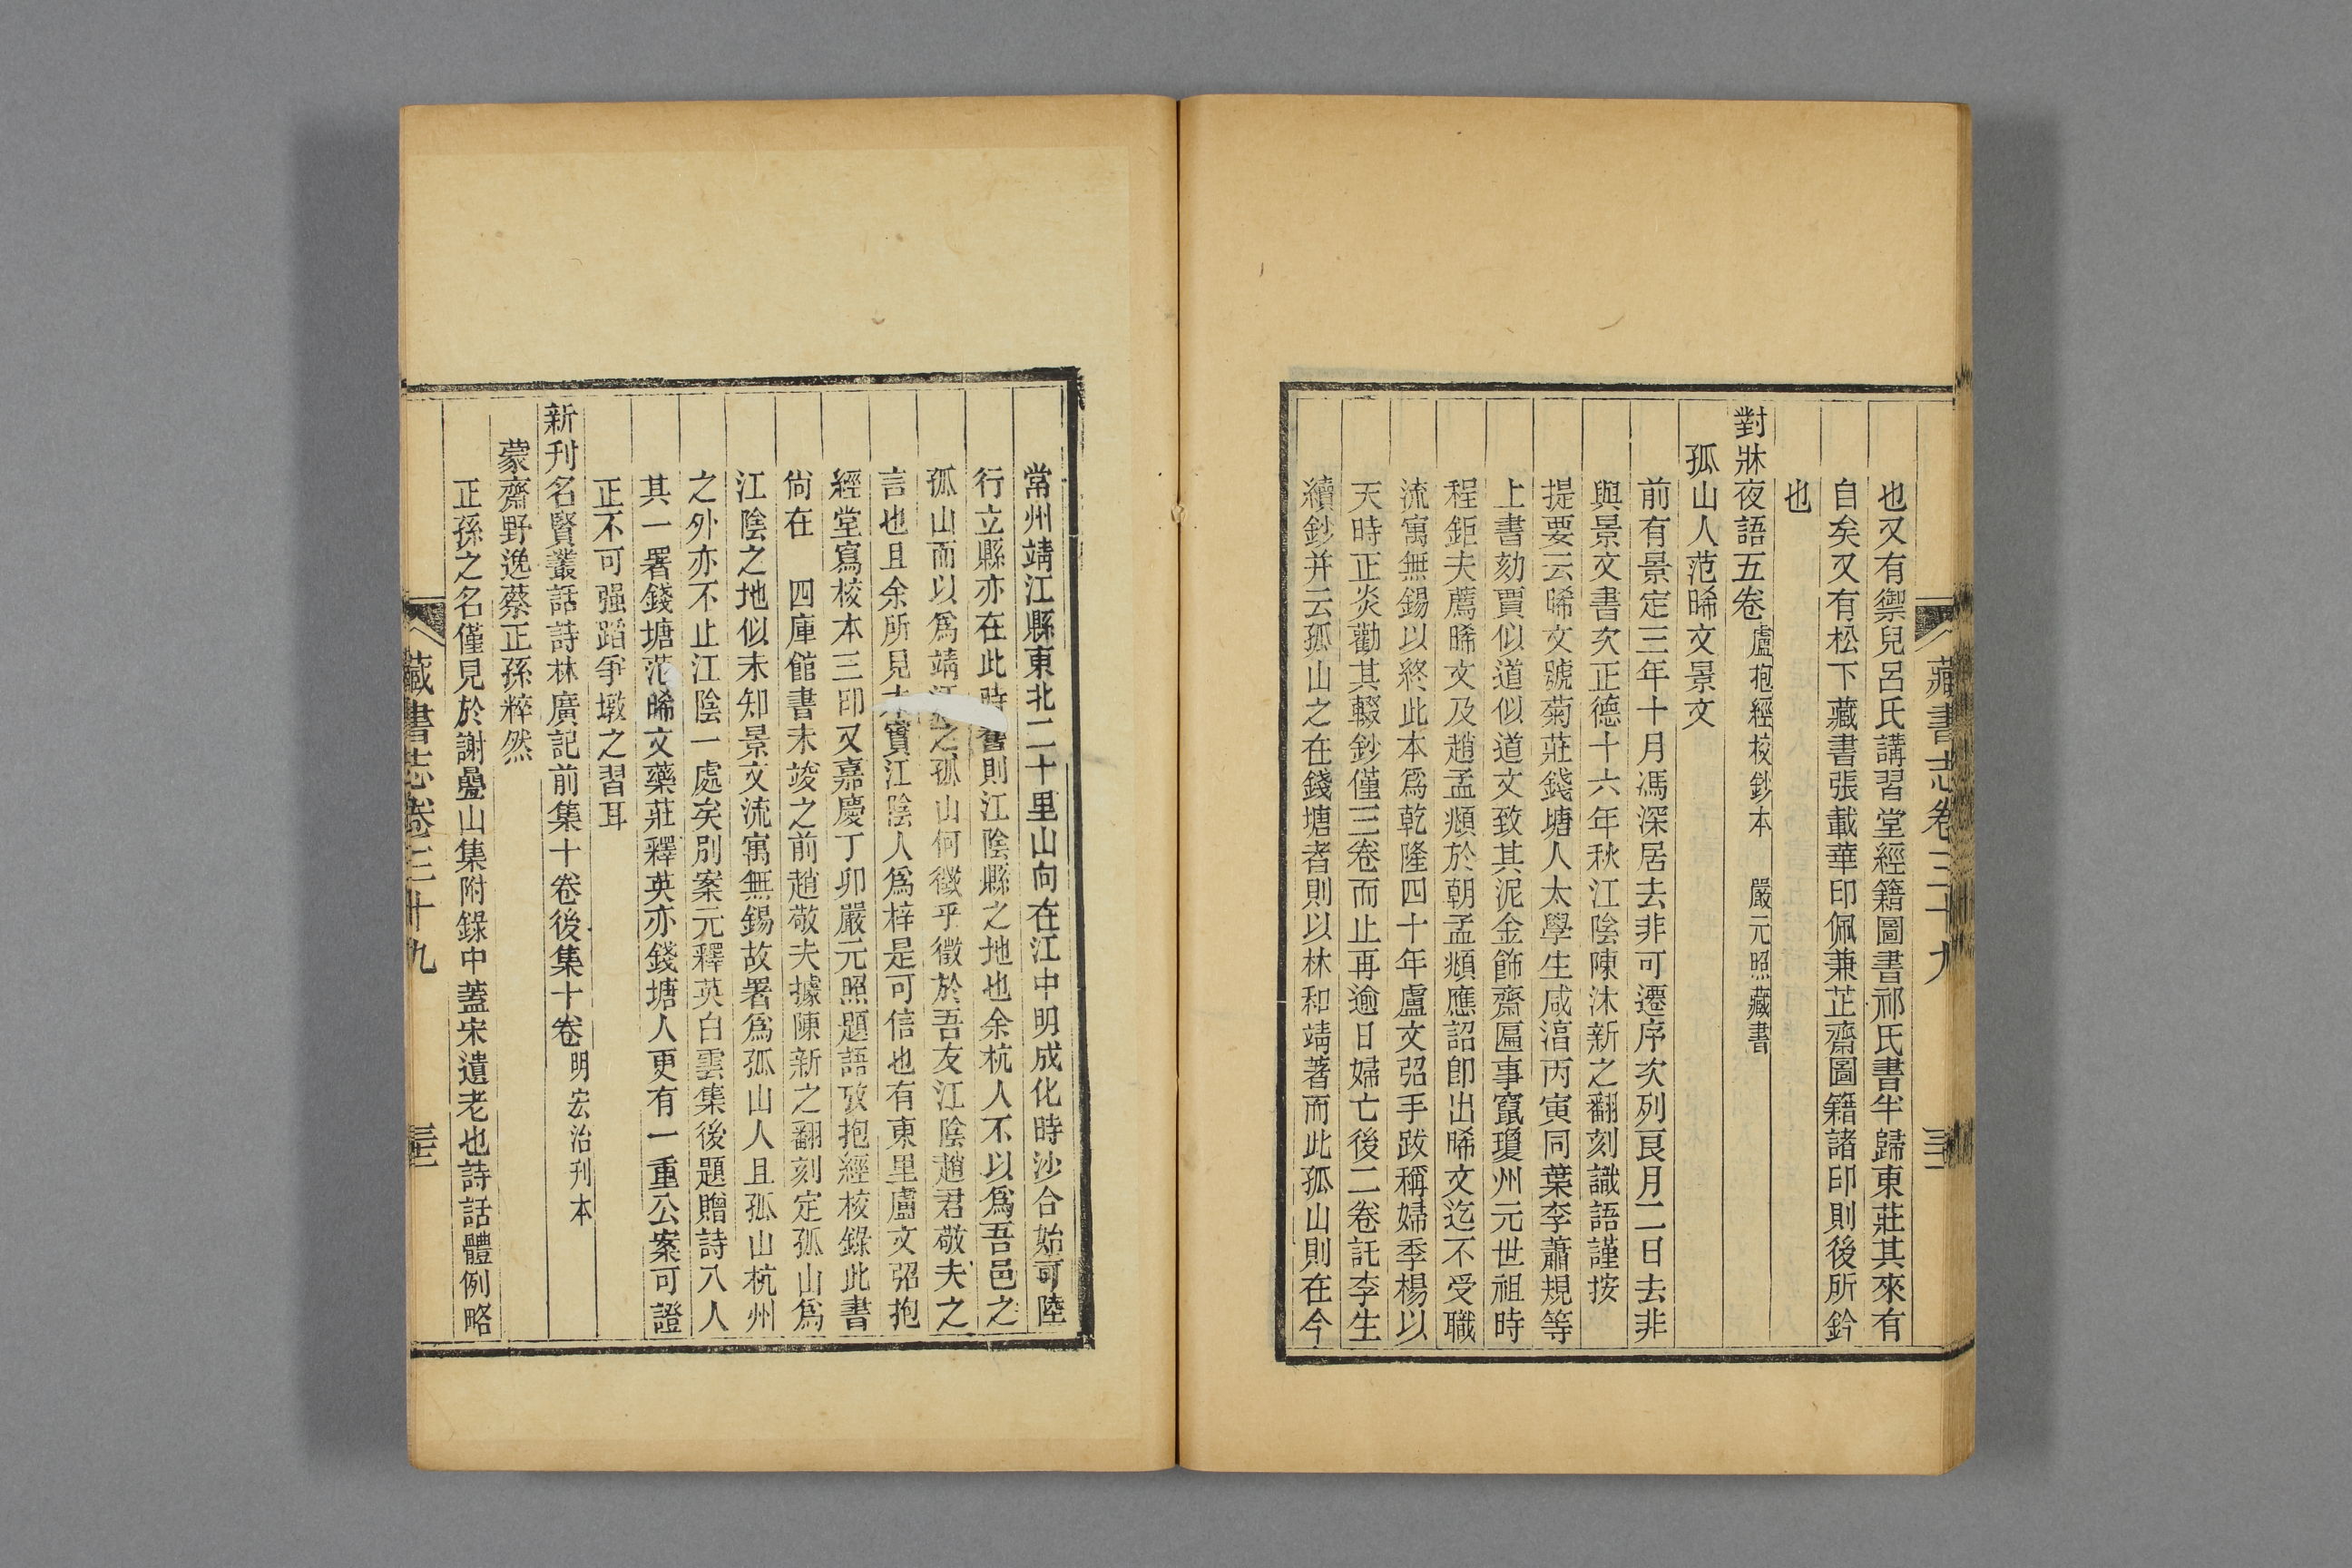 藏書志卷三十九
三十一
也又有禦兒呂氏講習堂經籍圖書祁氏書半歸東莊其來有
自矣又有松下藏書張載華印佩兼芷齋圖籍諸印則後所鈐
也
對牀夜語五卷盧抱經校鈔本 嚴元照藏書
孤山人范晞文景文
前有景定三年十月馮深居去非可遷序次列艮月二日去非
與景文書次正德十六年秋江陰陳沐新之翻刻識語謹按
提要云晞文號菊莊錢塘人太學生咸湻丙寅同葉李蕭規等
上書劾賈似道似道文致其泥金飾齋匾事竄瓊州元世祖時
程鉅夫薦晞文及趙孟頫於朝孟頫應詔卽出晞文迄不受職
流寓無錫以終此本爲乾隆四十年盧文弨手跋稱婦季楊以
天時正炎勸其輟鈔僅三卷而止再逾日婦亡後二卷託李生
續鈔并云孤山之在錢塘者則以林和靖著而此孤山則在今
常州靖江縣東北二十里山向在江中明成化時沙合始可陸
行立縣亦在此時舊則江陰縣之地也余杭人不以爲吾邑之
孤山而以爲靖江之孤山何徵乎徵於吾友江陰趙君敬夫之
言也且余所見本實江陰人爲梓是可信也有東里盧文弨抱
經堂寫校本三印又嘉慶丁卯嚴元照題語攷抱經校錄此書
尙在 四庫館書未竣之前趙敬夫據陳新之翻刻定孤山爲
江陰之地似未知景文流寓無錫故署爲孤山人且孤山杭州
之外亦不止江陰一處矣別案元釋英白雲集後題贈詩八人
其一署錢塘范晞文藥莊釋英亦錢塘人更有一重公案可證
正不可强蹈爭墩之習耳
新刊名賢叢話詩林廣記前集十卷後集十卷明宏治刊本
蒙齋野逸蔡正孫粹然
正孫之名僅見於謝疊山集附錄中蓋宋遺老也詩話體例略
藏書志卷三十九
三十二